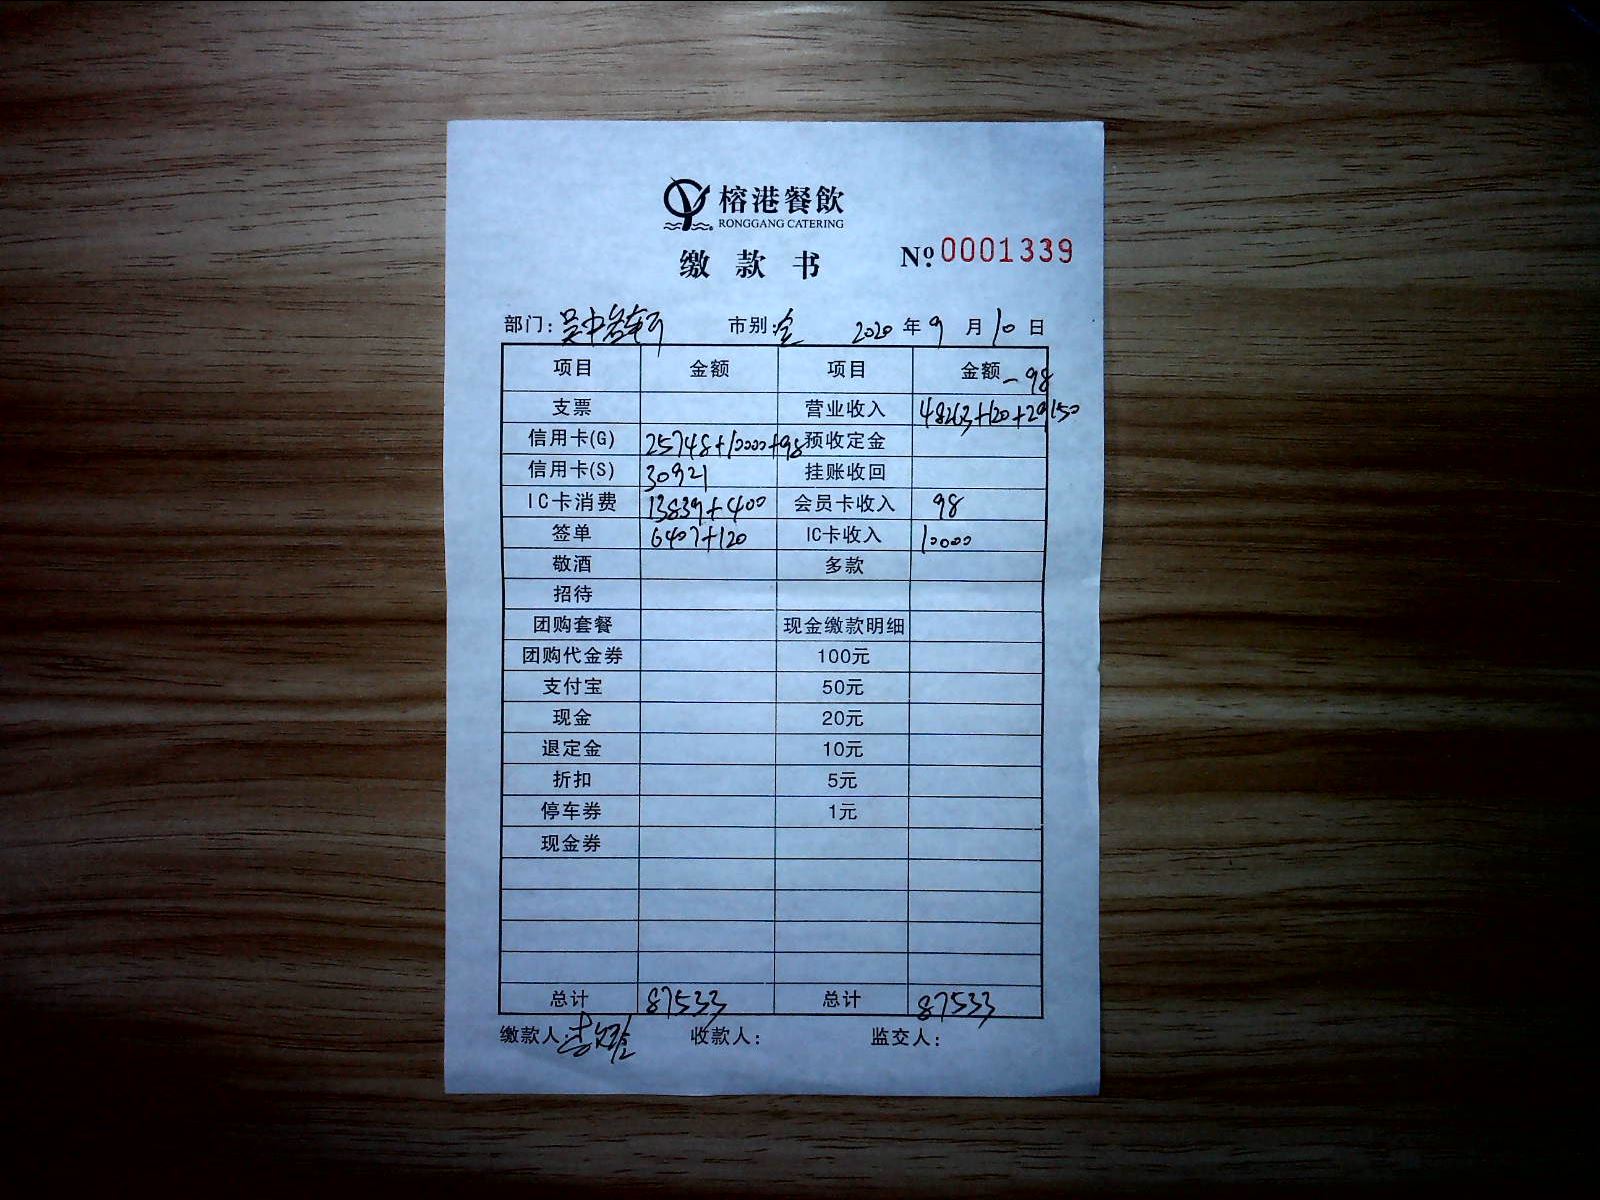 榕港餐飲
RONGGANG CATERING
缴款书
Nº 0001339
部门: 吴中 市别: 全 2020 年 9 月 10 日
项目 金额 项目 金额 -98
支票 营业收入 48263+120+29150
信用卡(G) 25748+10000+98 预收定金
信用卡(S) 30921 挂账收回
IC卡消费 13839+400 会员卡收入 98
签单 6407+120 IC卡收入 10000
敬酒 多款
招待
团购套餐 现金缴款明细
团购代金券 100元
支付宝 50元
现金 20元
退定金 10元
折扣 5元
停车券 1元
现金券
总计 87533 总计 87533
缴款人: 收款人: 监交人: